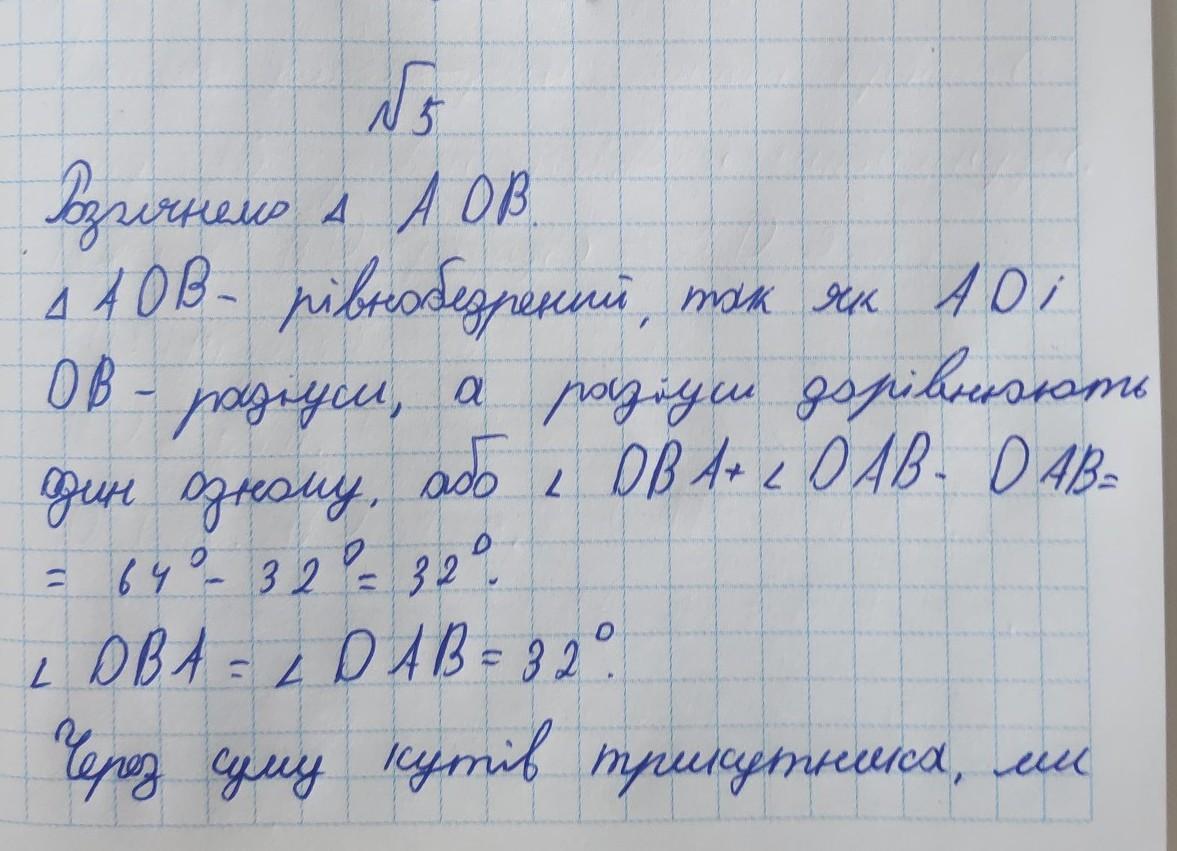 №5
Розглянемо Δ AOB.
Δ AOB - рівнобедрений, так як AO і
OB - радіуси, а радіуси дорівнюють
один одному, або ∠ OBA + ∠ OAB - OAB =
= 64° - 32° = 32°.
∠ OBA = ∠ OAB = 32°.
Через суму кутів трикутника, ми